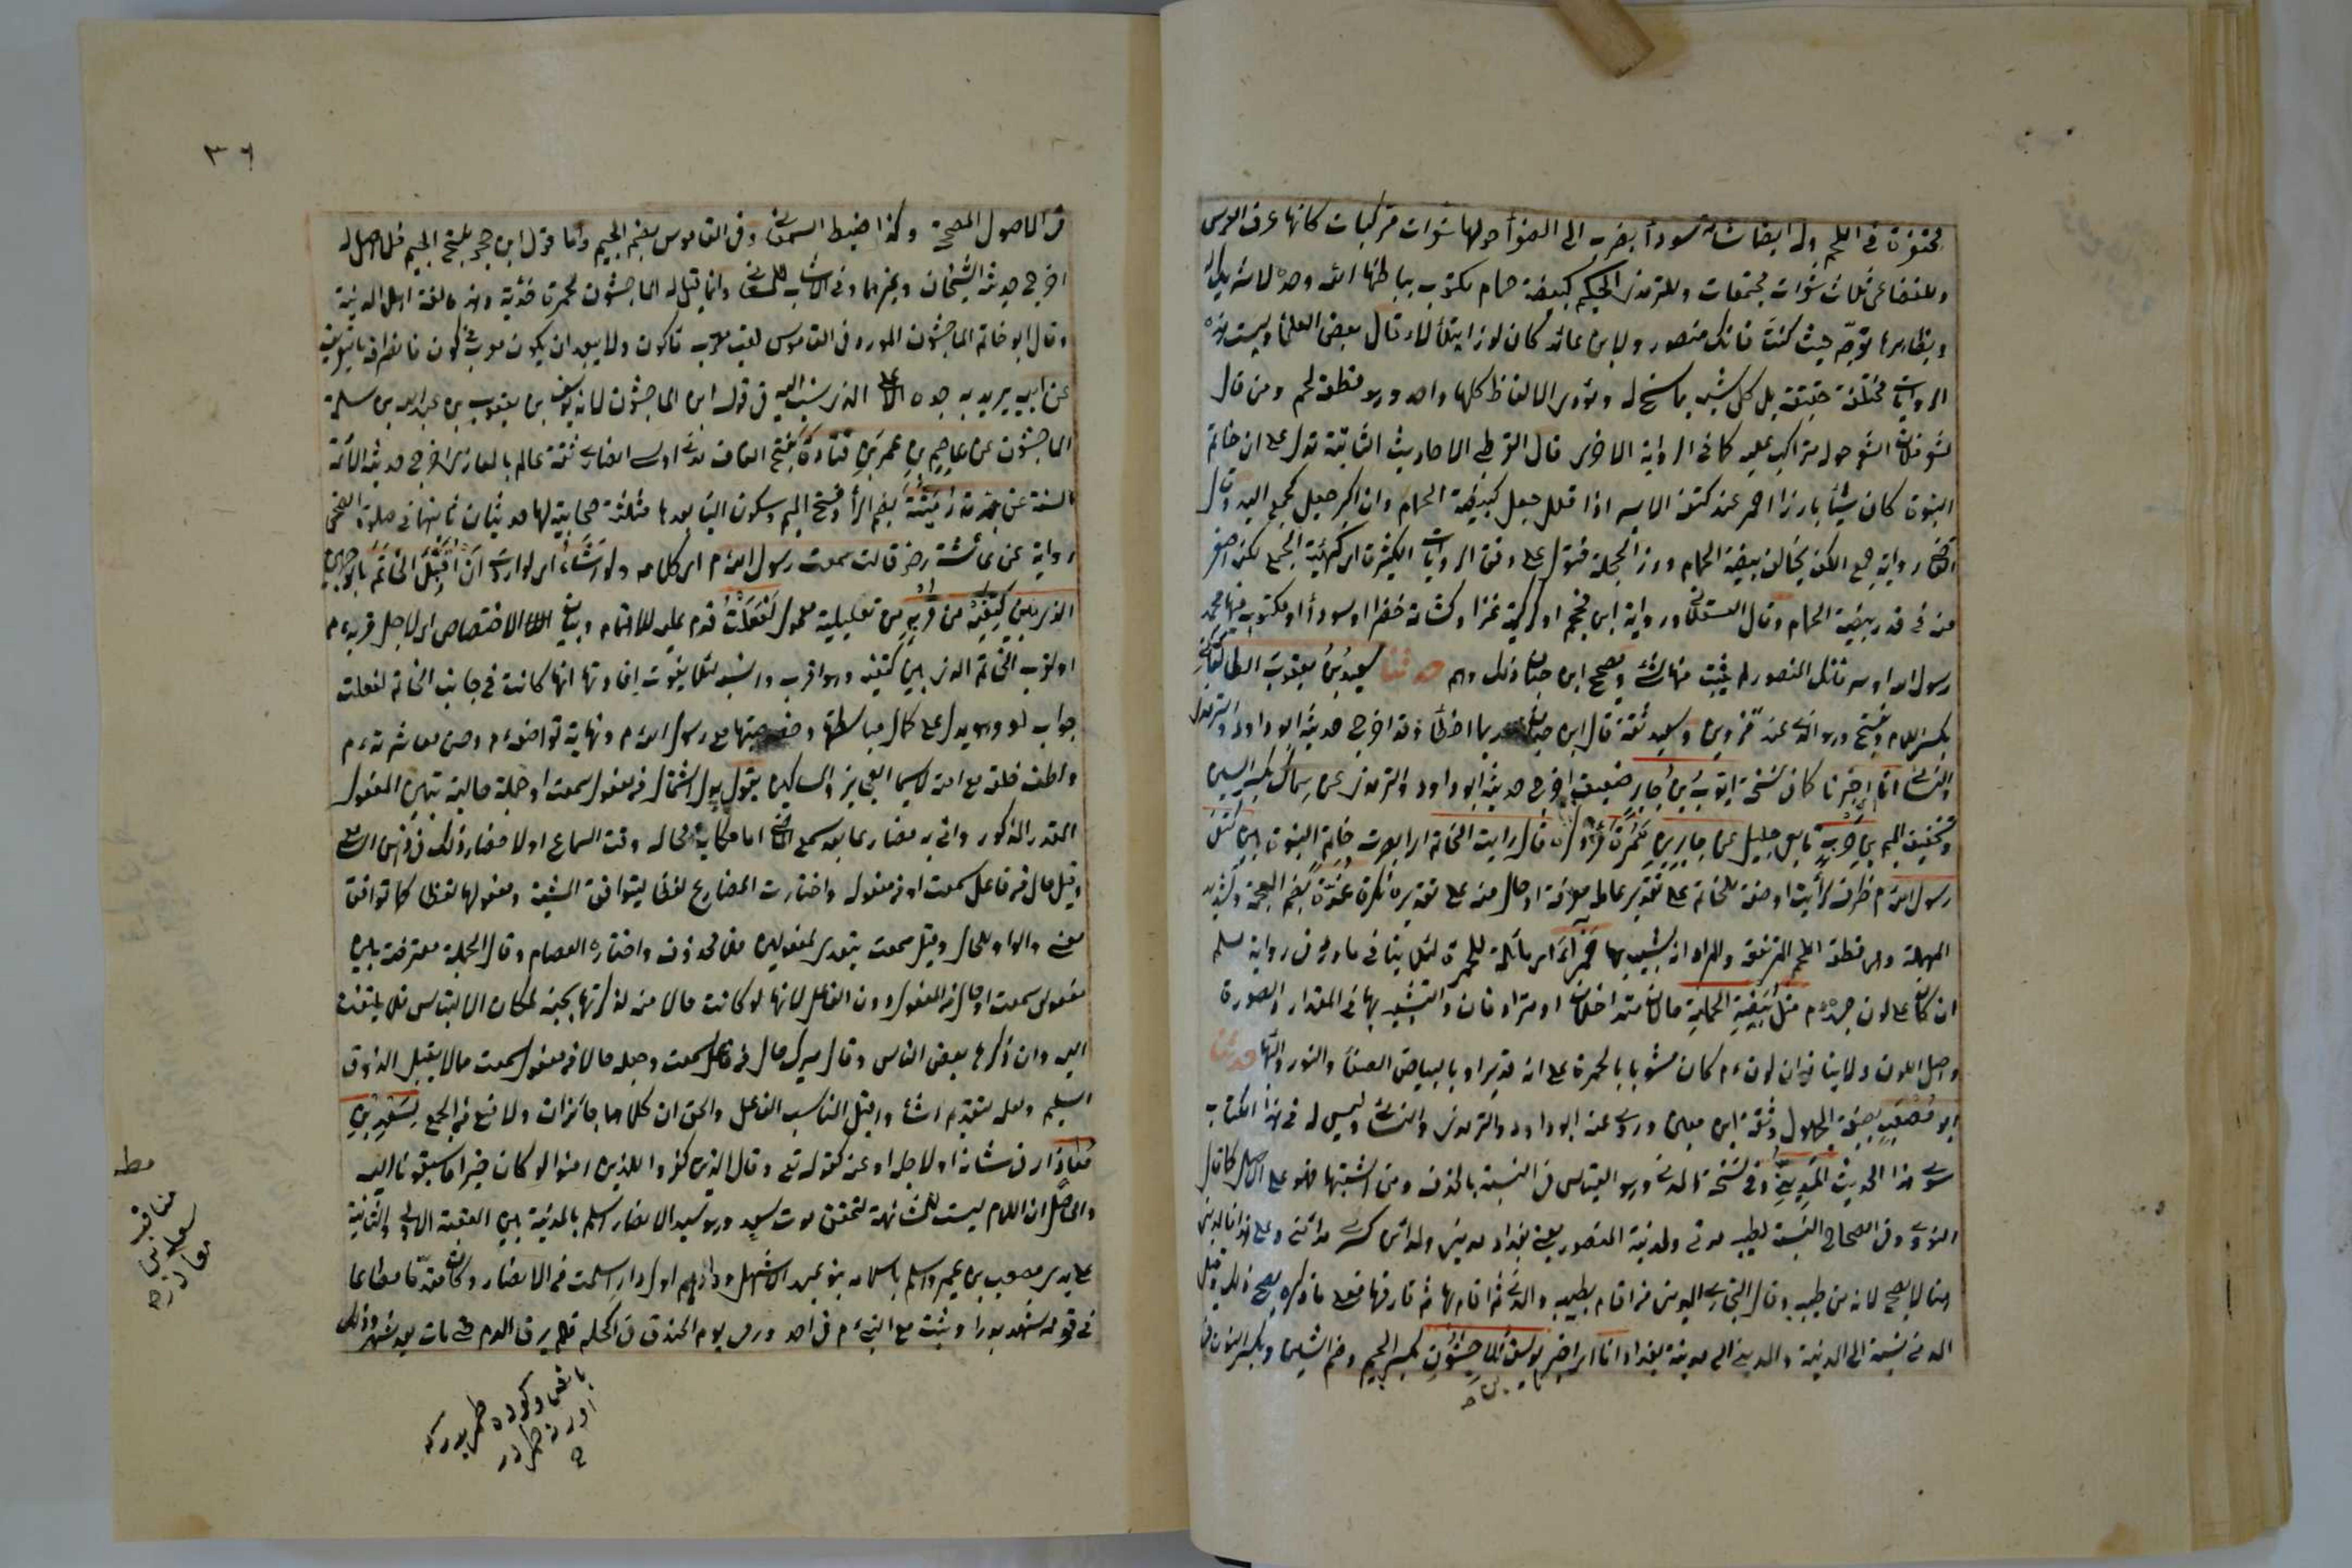 محتفرة في اللحم وله ايضا شامة سوداء تضرب الى الصفرة حولها شعرات متراكبات كانها عرف الفرس
وللقضاعي ثلاث شعرات مجتمعات وللترمذي الحكيم كبيضة حمام مكتوب بباطنها الله وحده لا شريك له
وبظاهرها توجه حيث كنت فانك منصور ولابن عائذ كان نورا يتلألأ قال بعض العلماء وليست هذه
الروايات مختلفة حقيقة بل كل شبه بما سنح له ومؤدى الالفاظ كلها واحد وهو قطعة لحم ومن قال
شعر فلان الشعر حوله متراكب عليه كما في الرواية الاخرى قال القرطبي الاحاديث الثابتة تدل على ان خاتم
النبوة كان شيئا بارزا احمر عند كتفه الايسر اذا قلل جعل كبيضة الحمام وان اكبر جعل كجمع اليد وقال
القاضي رواية جمع الكف يخالف بيضة الحمام وزر الحجلة فتؤول على وفق الروايات الكثيرة اي كهيئة الجمع لكنه اصغر
منه في قدر بيضة الحمام وقال العسقلاني ورواية اثر محجم او كركبة عنز او كشامة خضراء او سوداء او مكتوب فيها محمد
رسول الله او سر فانك المنصور لم يثبت منها شيء وتصحيح ابن حبان ذلك وهم حدثنا سعيد بن يعقوب الطالقاني
بكسر اللام وتفتح وهو بلدة عند قزوين وسعيد ثقة قال ابن حبان ربما اخطأ وقد اخرج حديثه ابو داود والترمذي
والنسائي انا اخبرنا كما في نسخة ايوب بن جابر ضعيف اخرج حديثه ابو داود والترمذي عن سماك بكسر السين
وتخفيف الميم بن حرب تابعي جليل عن جابر بن سمرة قال رايت الخاتم اي ابصرت خاتم النبوة بين كتفي
رسول الله م ظرف لرأيت او صفة للخاتم على تقدير عامله معرفة او حال منه على تقديره نكرة غدة بضم المعجمة وتشديد
المهملة وهي قطعة اللحم المرتفعة والمراد انه شبيه بها حمراء اي مائلة للحمرة لئلا ينافي ما ورد في رواية مسلم
انه كان على لون جسده م مثل بيضة الحمامة حالان متداخلان او مترادفان والتشبيه بها في المقدار والصورة
واصل اللون ولا ينافي ان لونه م كان مشوبا بالحمرة على انه قد يراد بالبياض الصفاء والنور والبهاء حدثنا
ابو مصعب بصيغة المجهول وثقه ابن معين وروى عنه ابو داود والترمذي والنسائي وليس له في هذا الكتاب
سوى هذا الحديث المديني وفي نسخة المدني وهو القياس في النسبة بالحذف ومن اثبتها فهو على الاصل كما قال
النووي وفي الصحاح النسبة لطيبة مدني ولمدينة المنصور يعني بغداد مديني ولمدائن كسرى مدائني وعلى هذا فالمديني
هنا لا يصح لانه من طيبة وقال البخاري المديني من اقام بطيبة والمدني من اقام بها ثم فارقها فعلى ما ذكره يصح ذلك وقيل
المدني نسبة الى المدينة والمديني الى مدينة بغداد انا اي اخبر يوسف بن الماجشون بكسر الجيم وضم الشين وبكسر النون
٣٦
في الاصول المصححة وكذا ضبطه السمعاني وفي القاموس بضم الجيم واما قول ابن حجر بفتح الجيم فلا اصل له
اخرج حديثه الشيخان وغيرهما وفي الانساب للسمعاني وانما قيل له الماجشون لحمرة خديه وهذه لغة اهل المدينة
وقال ابو حاتم الماجشون المورد وفي القاموس لقب معرب ماه كون ولا يبعد ان يكون معرب مي كون
عن ابيه يريد به جده الاعلى الذي نسب اليه في قوله ابن الماجشون لانه يوسف بن يعقوب بن عبد الله بن سلمة
الماجشون عن عاصم بن عمر بن قتادة بفتح القاف مدني اوسي انصاري ثقة عالم بالمغازي اخرج حديثه الائمة
الستة عن جدته رميثة بضم الراء وفتح الميم وسكون الياء بعدها مثلثة صحابية لها حديثان ثانيهما في صلوة الضحى
رواية عن عائشة رض قالت سمعت رسول الله م اي كلامه ولو اشاء اي لو اردت ان اقبل الخاتم
الذي بين كتفيه من قربه من تعليلية معمول لفعلت قدم عليه للاهتمام وبيان الاختصاص اي لاجل قربه م
او قرب الخاتم الذي بين كتفيه وهو اقرب وانسب لئلا يفوت افادتها انها كانت في جانب الخاتم لفعلت
جواب لو وهو يدل على كمال مباسطتها مع رسول الله م ونهاية تواضعه م وحسن معاشرته م
ولطف خلقه مع امته لا سيما العجائز والمساكين يقول بدل اشتمال من مفعول سمعت او جملة حالية تبين المفعول
المقدر المذكور واتى به مضارعا بعد سمع الماضي اما حكاية لحاله وقت السماع او لاحضار ذلك في ذهن السامع
وقيل حال من فاعل سمعت او من مفعوله واختارت المضارع لفظا ليتوافق المشيئة ومفعولها لفظا كما توافق
معنى والواو للحال وقيل سمعت يتعدى لمفعولين فهي محذوفة واختاره العصام وقال الجملة معترضة بين
مفعولي سمعت او حال من المفعول دون الفاعل لانها لو كانت حالا منه لذكرتها بجنبه لمكان الالتباس فلا يلتفت
اليه وان ذكره بعض الناس وقال ميرك حال من فاعل سمعت وجعله حالا من مفعول سمعت مما لا يقبله الذوق
السليم ولعله لتقديم اشاء واقبل المناسب للفاعل والحق ان كلاهما جائزان ولا منع من الجمع لسعد بن
معاذ اي في شانه او لاجله او عنه كقوله تع وقال الذين كفروا للذين امنوا لو كان خيرا ما سبقونا اليه
والحاصل ان اللام ليست للمشافهة لتحقق موت سعد وهو سيد الانصار اسلم بالمدينة بين العقبة الاولى والثانية
على يد مصعب بن عمير واسلم باسلامه بنو عبد الاشهل ودارهم اول دار اسلمت من الانصار وكان مقدما مطاعا
في قومه شهد بدرا وثبت مع النبي م في احد ورمى يوم الخندق في اكحله فلم يرق الدم حتى مات بعد شهر وذلك
مط
مناقب
سعد بن
معاذ رض